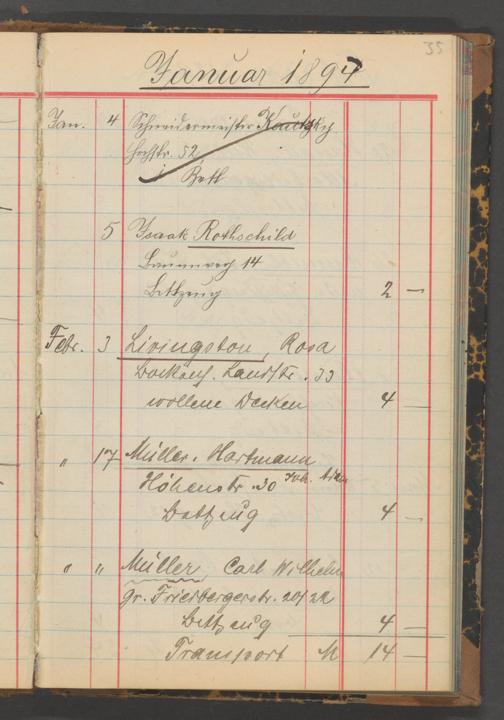 35
Januar 1897
Jan. 4 Schneidermeister Kautzky
Hochstr. 52
1 Bett
5 Isaak Rothschild
Baumweg 14
Bettzeug 2 —
Febr. 3 Livingston, Rosa
Bockenh. Landstr. 33
wollene Decken 4 —
" 17 Müller, Hartmann
Höhenstr. 30
Bettzeug 4 —
" " Müller, Carl Wilhelm
Gr. Friedbergerstr. 20/22
Bettzeug 4 —
Transport M 14 —